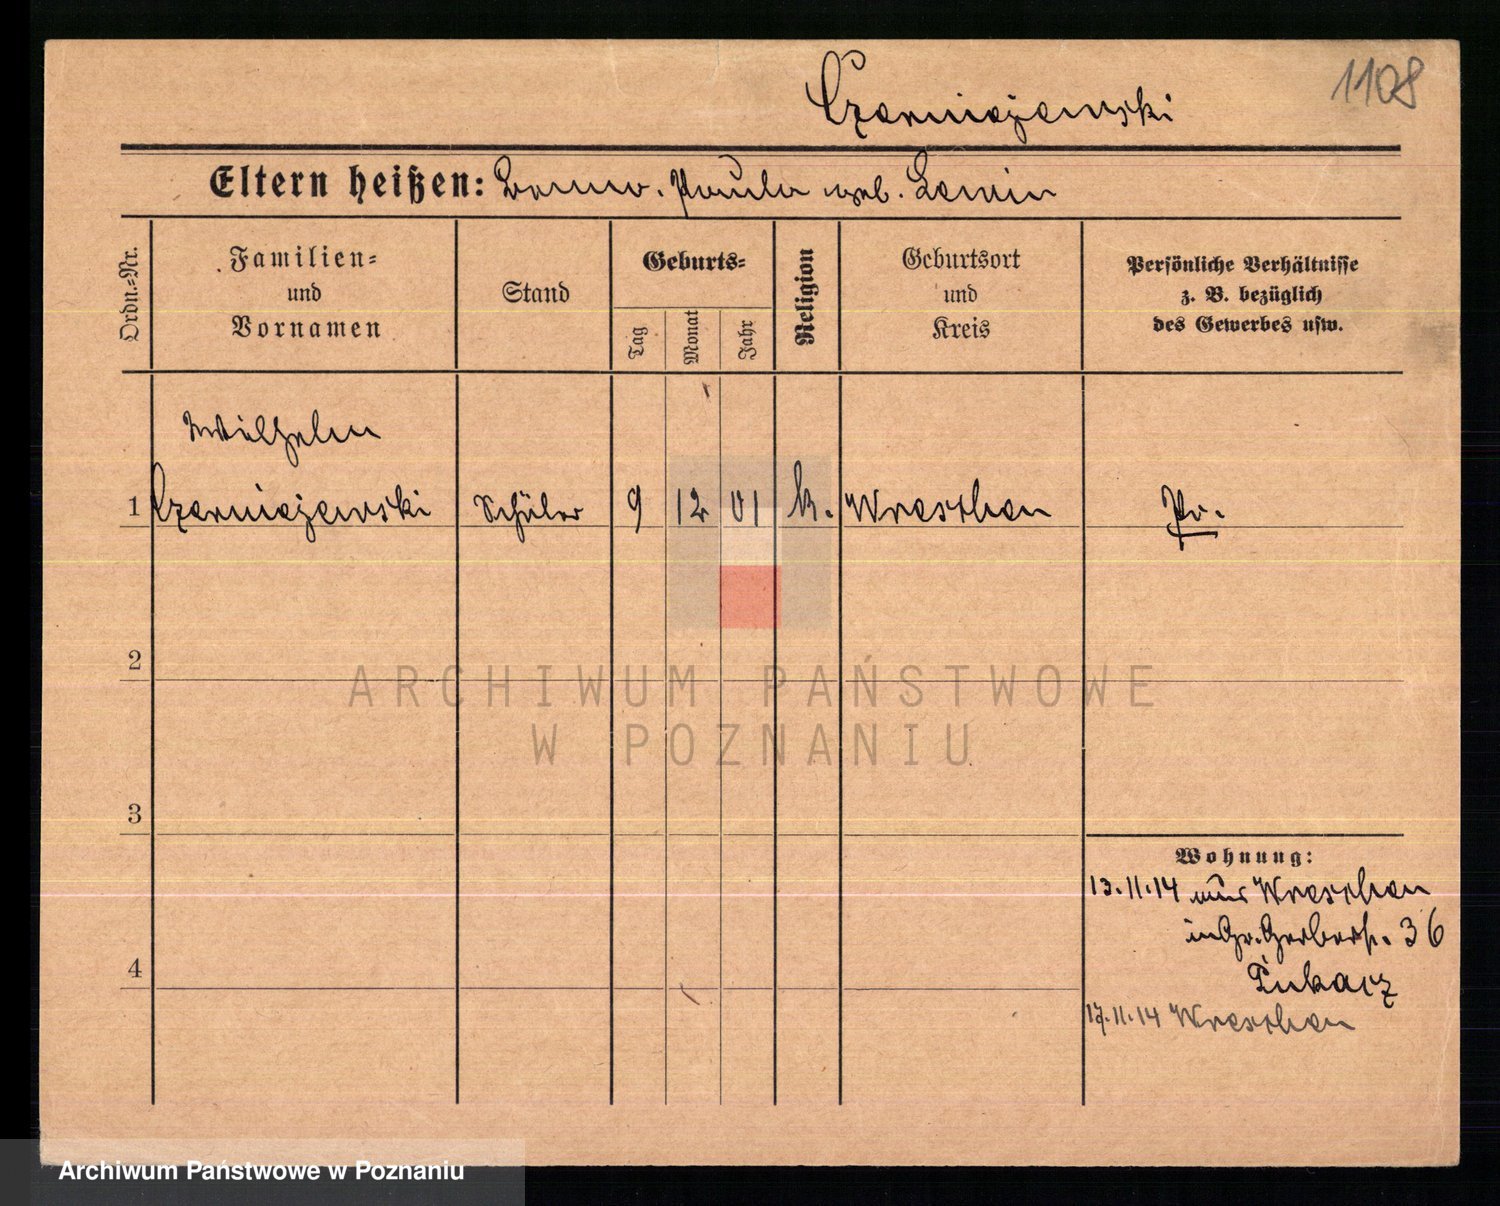 Czarniejewski
1108
Eltern heißen: Paula geb. Lewin
Ordn.-Nr.
Familien-
und
Vornamen
Stand
Geburts-
Tag
Monat
Jahr
Religion
Geburtsort
und
Kreis
Persönliche Verhältnisse
z. B. bezüglich
des Gewerbes usw.
Wilhelm
1 Czarniejewski Schüler 9 12 01 k. Wreschen Pr.
2
3
4
Wohnung:
13.11.14 aus Wreschen
in Gr. Gerberstr. 36
17.11.14 Wreschen
ARCHIWUM PAŃSTWOWE
W POZNANIU
Archiwum Państwowe w Poznaniu